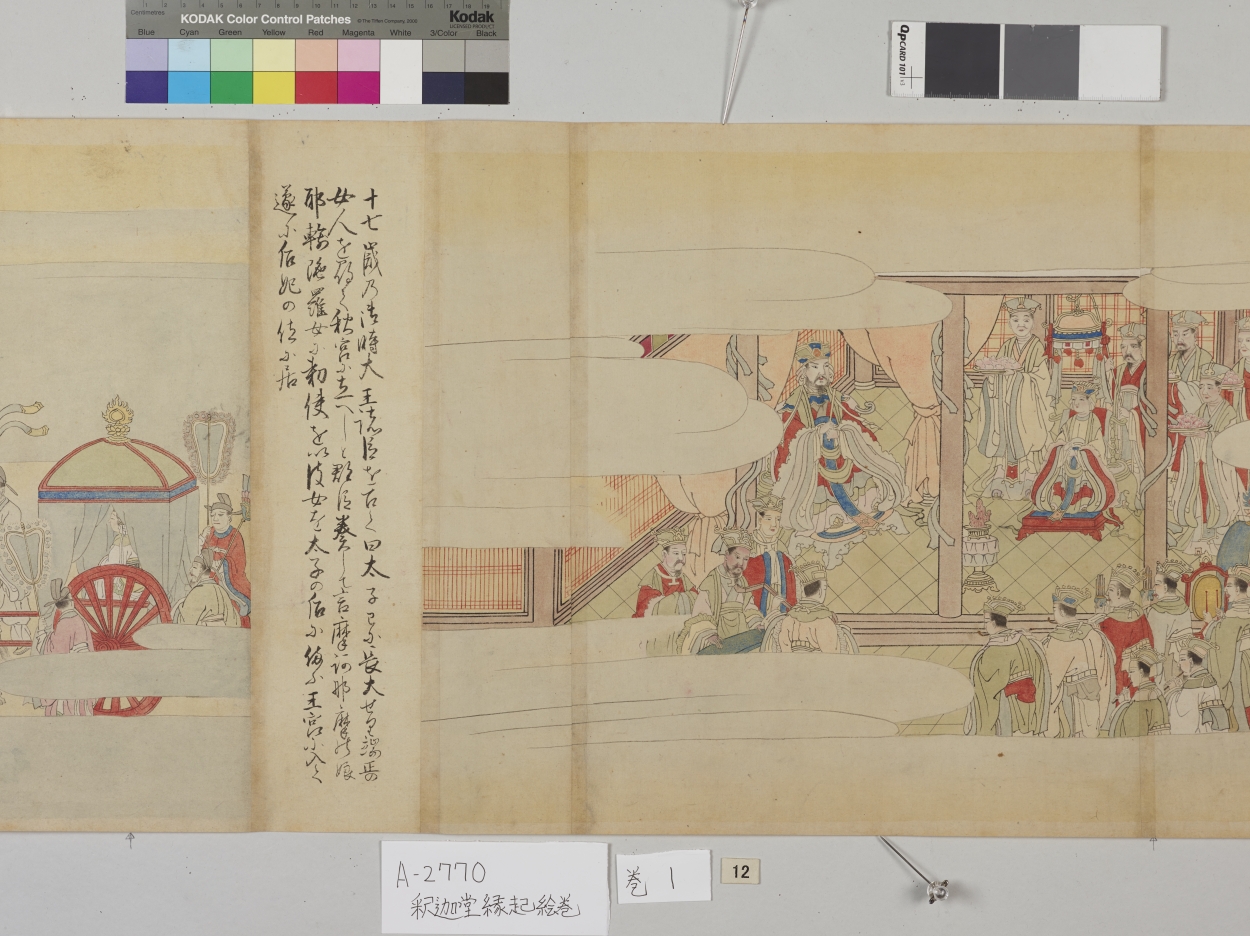 Centimetres
KODAK Color Control Patches
© The Tiffen Company, 2000
Kodak
LICENSED PRODUCT
Blue
Cyan
Green
Yellow
Red
Magenta
White
3/Color
Black
QPCARD 101
十七歳乃御時大王諸臣を召て曰太子已に長大せり
女人を得て秋宮に立へしと群臣奏して言摩訶那摩
耶輸陁羅女に勅使を以彼女を太子の后に備ふ王宮に入て
遂に后妃の位に居
A-2770
釈迦堂縁起絵巻
巻 1
12